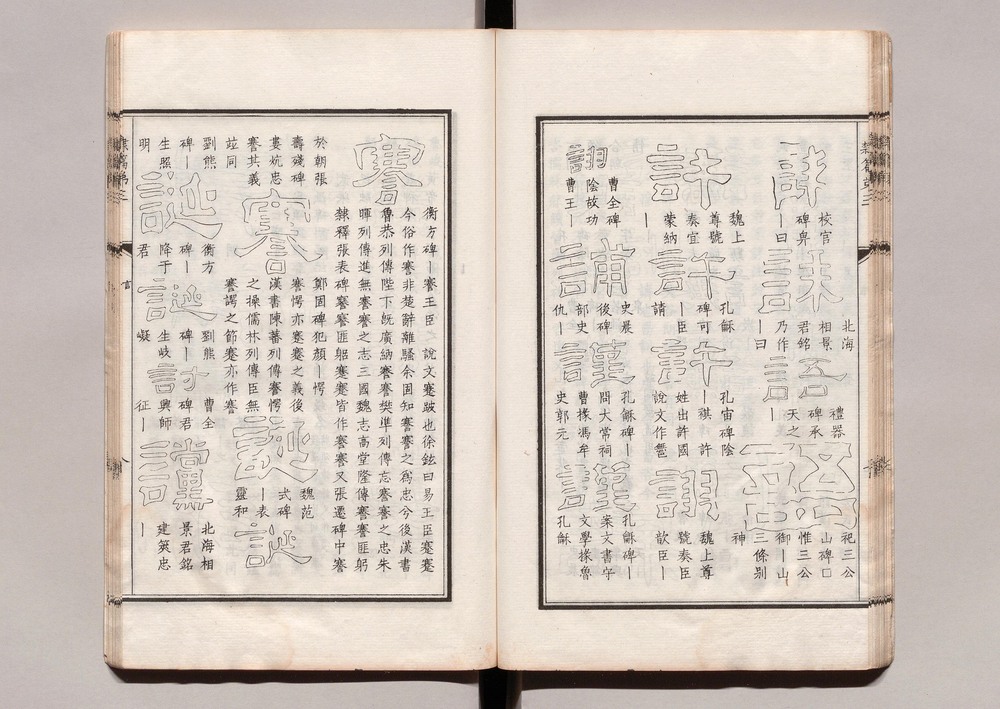 校官
碑卑
—曰
誄
北海
相景
君銘
乃作
—曰
語
禮器
碑承
天之
—
語
祀三公
山碑口
惟三公
御—山
三條别
神
許
魏上
尊號
奏宜
蒙納
—
許
孔龢
碑可
—臣
請
許
孔宙碑陰
—祺 許
姓出許國
說文作鄦
詡
魏上尊
號奏臣
歆臣—
詡
曹全碑
陰故功
曹王—
誧
史晨
後碑
部史
仇—
謹
孔龢碑—
問大常祠
曹掾馮牟
史郭元
謹
孔龢碑—
案文書守
文學掾魯
孔龢
謇
衡方碑—謇王臣 說文蹇跛也徐鉉曰易王臣蹇蹇
今俗作謇非楚辭離騷余固知謇謇之爲忠今後漢書
魯恭列傳陛下旣廣納謇謇樊準列傳忘謇謇之忠朱
暉列傳進無謇謇之志三國魏志高堂隆傳謇謇匪躬
隸釋張表碑謇謇匪躬蹇蹇皆作謇謇又張遷碑中謇
於朝張
壽殘碑
婁炕忠
謇其義
竝同
謇
鄭固碑犯顏—愕
謇愕亦蹇蹇之義後
漢書陳蕃列傳謇愕
之操儒林列傳臣無
謇諤之節蹇亦作謇
誕
魏范
式碑
—表
靈和
誕
劉熊
碑—
生照
明
誕
衡方
碑—
降于
君
誕
劉熊
碑—
生岐
嶷
討
曹全
碑君
興師
征—
讜
北海相
景君銘
建䇲忠
—
言